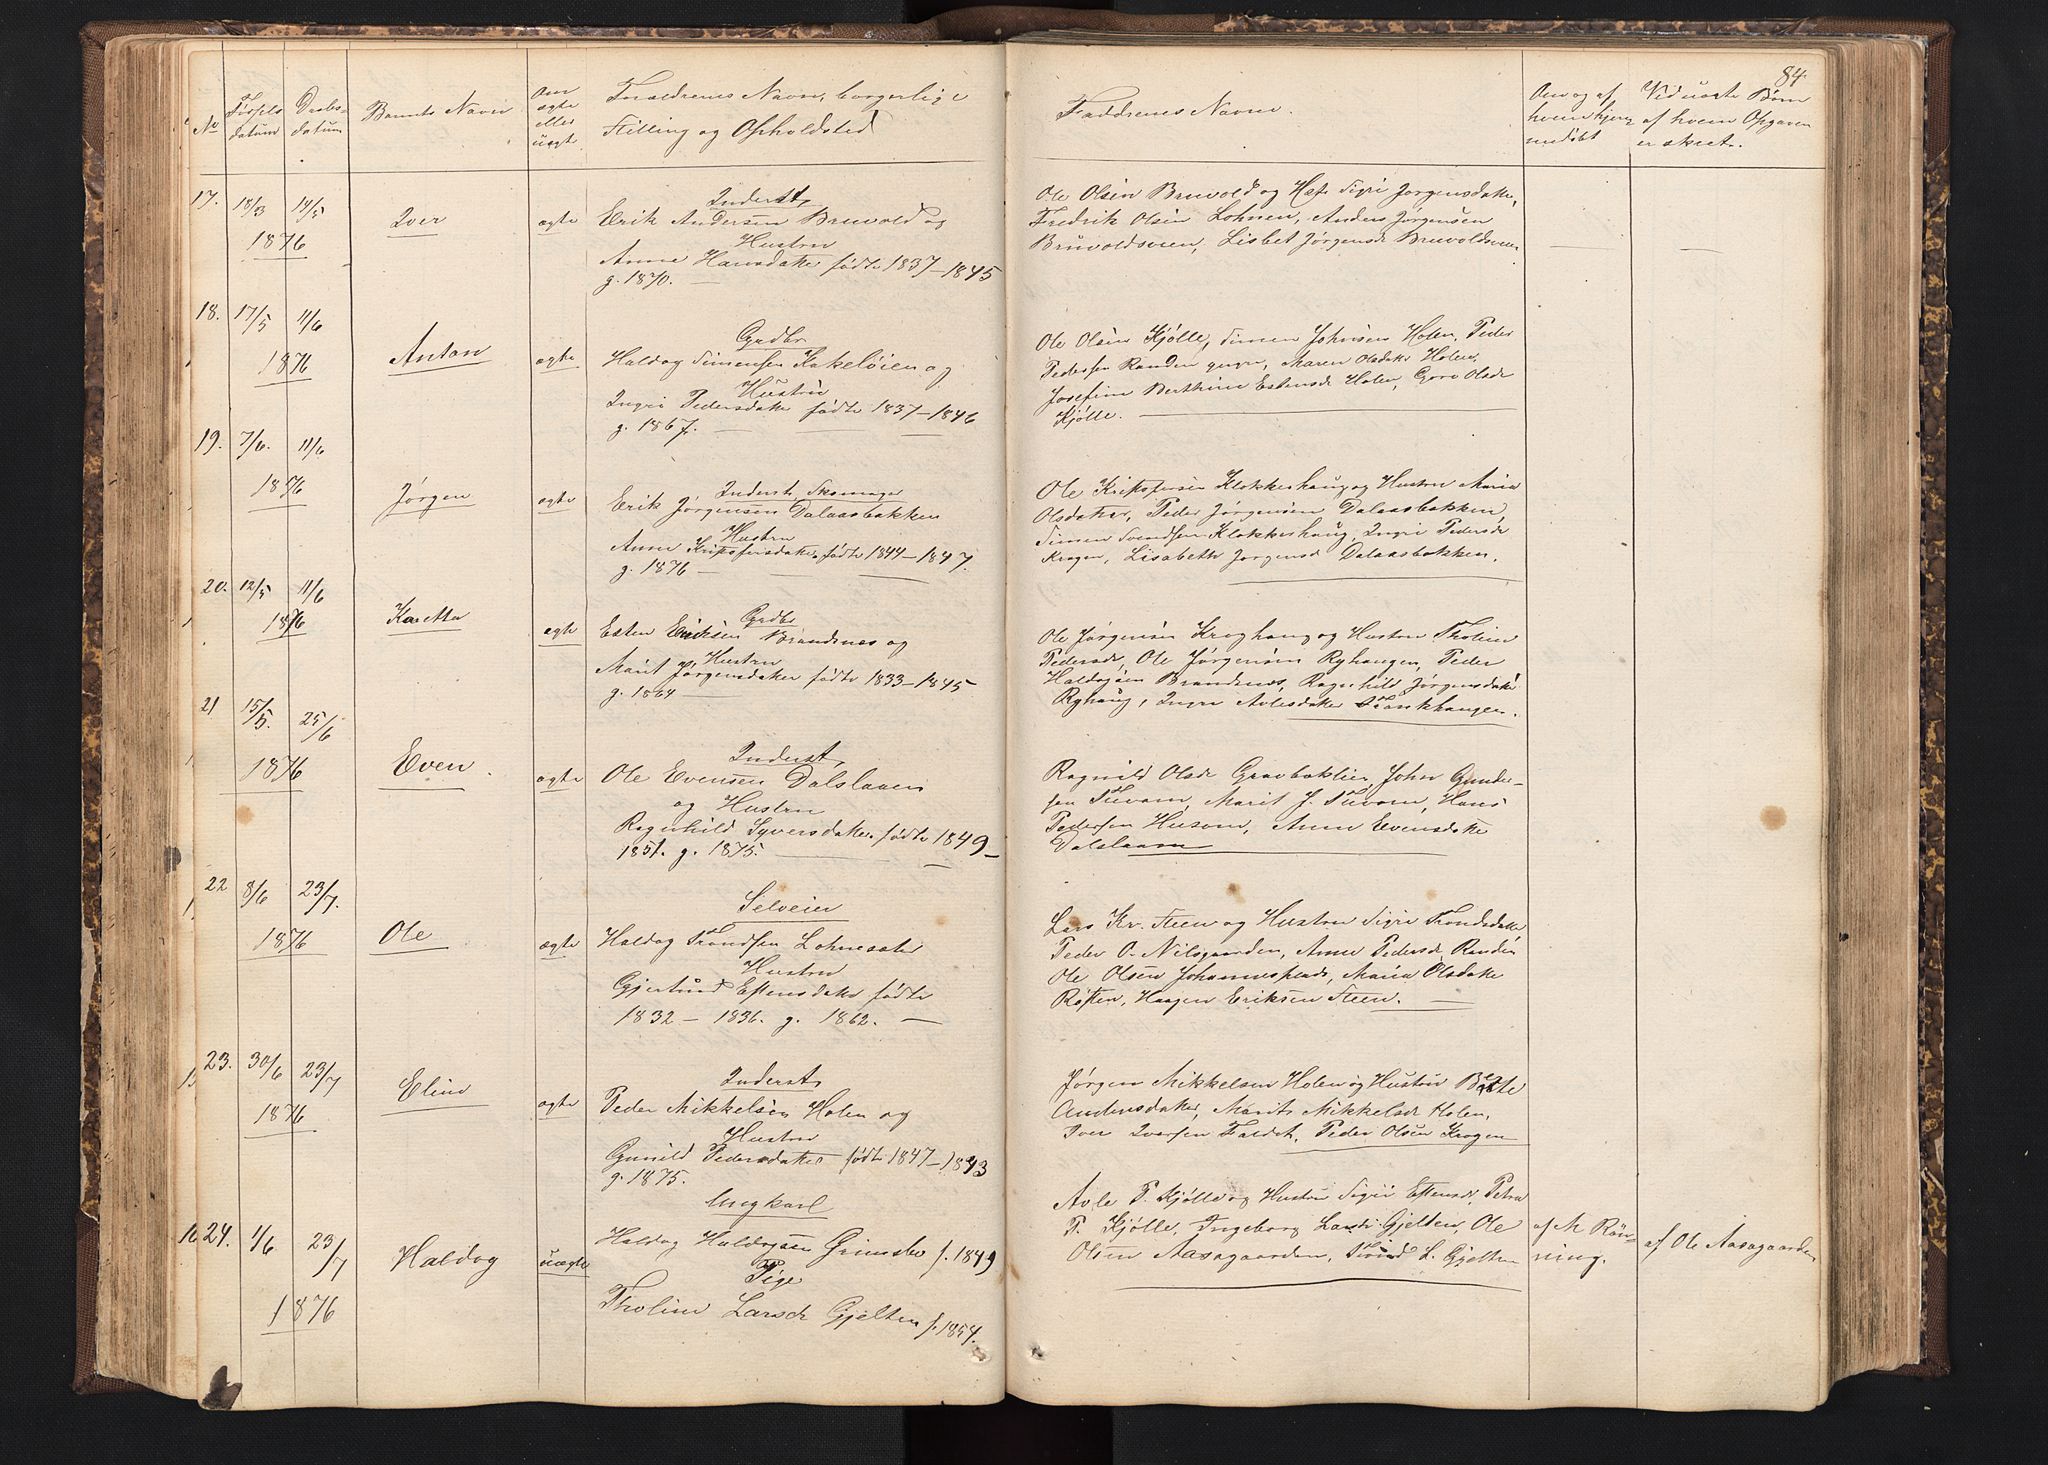 84.
No
Fødsels
datum
Daabs-
datum
Barnets Navn
Om
ægte
eller
uægte
Forældrenes Navn, borgerlige
Stilling og Opholdsted
Faddrenes Navne.
Om og af
hvem hjem
medøbt
Ved uægte Børn
af hvem Opgaven
er skeet.
17. 18/3 14/5
1876
Iver
ægte
Inderst,
Erik Andersen Bruvold og
Hustru
Anne Hansdater fødte 1837–1845
g. 1870. —
Ole Olsen Bruvold og Hst Sigri Jørgensdatr,
Fredrik Olsen Lohnen, Anders Jørgensen
Bruvoldsveen, Lisbet Jørgensdr Bruvoldsveen
18. 17/5 11/6
1876
Anton
ægte
Grdbr
Haldog Simensen Kakeløien og
Hustru
Ingri Pedersdater fødte 1837–1846
g. 1867. —
Ole Olsen Kjølle, Simen Johnsen Holen, Peder
Pedersen Randen yngre, Maren Olsdatr Holen,
Josefine Berthine Estensdr Holen, Goro Olsdr
Kjølle.
19. 7/6. 11/6
1876
Jørgen
ægte
Inderst, Skomager
Erik Jørgensen Dalaasbakken
Hustru
Anne Kristofersdater fødte 1844–1847.
g. 1876 —
Ole Kristofersen Klokkerhaug og Hustru Maria
Olsdater, Peder Jørgensen Dalaasbakken,
Simen Svendsen Klokkerhaug, Ingri Pedersdr
Krogen, Lisabeth Jørgensdr Dalaasbakken.
20. 12/5 11/6
1876
Karetta
ægte
Grdbr
Esten Eriksen Brandsnes og
Hustru
Marit Jørgensdater fødte 1833–1845
g. 1864
Ole Jørgensen Kroghaug og Hustru Tholine
Pedersdr, Ole Jørgensen Ryhaugen, Peder
Haldogsen Brandsnes, Ragnhild Jørgensdatr
Ryhaug, Ingri Avlesdater Stankhaugen.
21 15/5. 25/6
1876
Even.
ægte
Inderst,
Ole Evensen Dalslaaen
og Hustru
Ragnhild Syversdater fødte 1849–
1851. g. 1875.
Ragnild Olsdr Gravbaklien, John Gunder-
sen Tuvam, Marit J. Tuvam, Hans
Pedersen Husom, Anne Evensdatr
Dalslaaen
22 8/6 23/7.
1876
Ole
ægte
Selveier
Haldog Trondsen Lohnesater
Hustru
Gjertrud Estensdater fødte
1832 – 1836. g. 1862. —
Lars Kr. Steen og Hustru Sigri Trondsdatter
Peder O. Nilsgaarden, Anne Pedersdr Randen
Ole Olsen Johannesplads, Maria Olsdatr
Røsten, Haagen Eriksen Steen. —
23. 30/6 23/7
1876
Eline
ægte
Inderst,
Peder Mikkelsen Holen og
Hustru
Gunild Pedersdater fødte 1847–1843
g. 1875.
Jørgen Mikkelsen Holen og Hustru Berte
Andersdater, Marit Mikkelsdr Holen,
Iver Iversen Faldet, Peder Olsen Krogen
24. 1/6 23/7
1876
Haldog
uægte
Ungkarl
Haldog Haldogsen Grimsbo f. 1849
Pige
Tholine Larsdr Gjelten f. 1854.
Avle P. Kjølle og Hustru Sigri Estensdr, Petra
P. Kjølle, Ingeborg Larsdr Gjelten, Ole
Olsen Aasagaarden, Trond L. Gjelten
af M Røn-
ning.
af Ole Aasagaarden